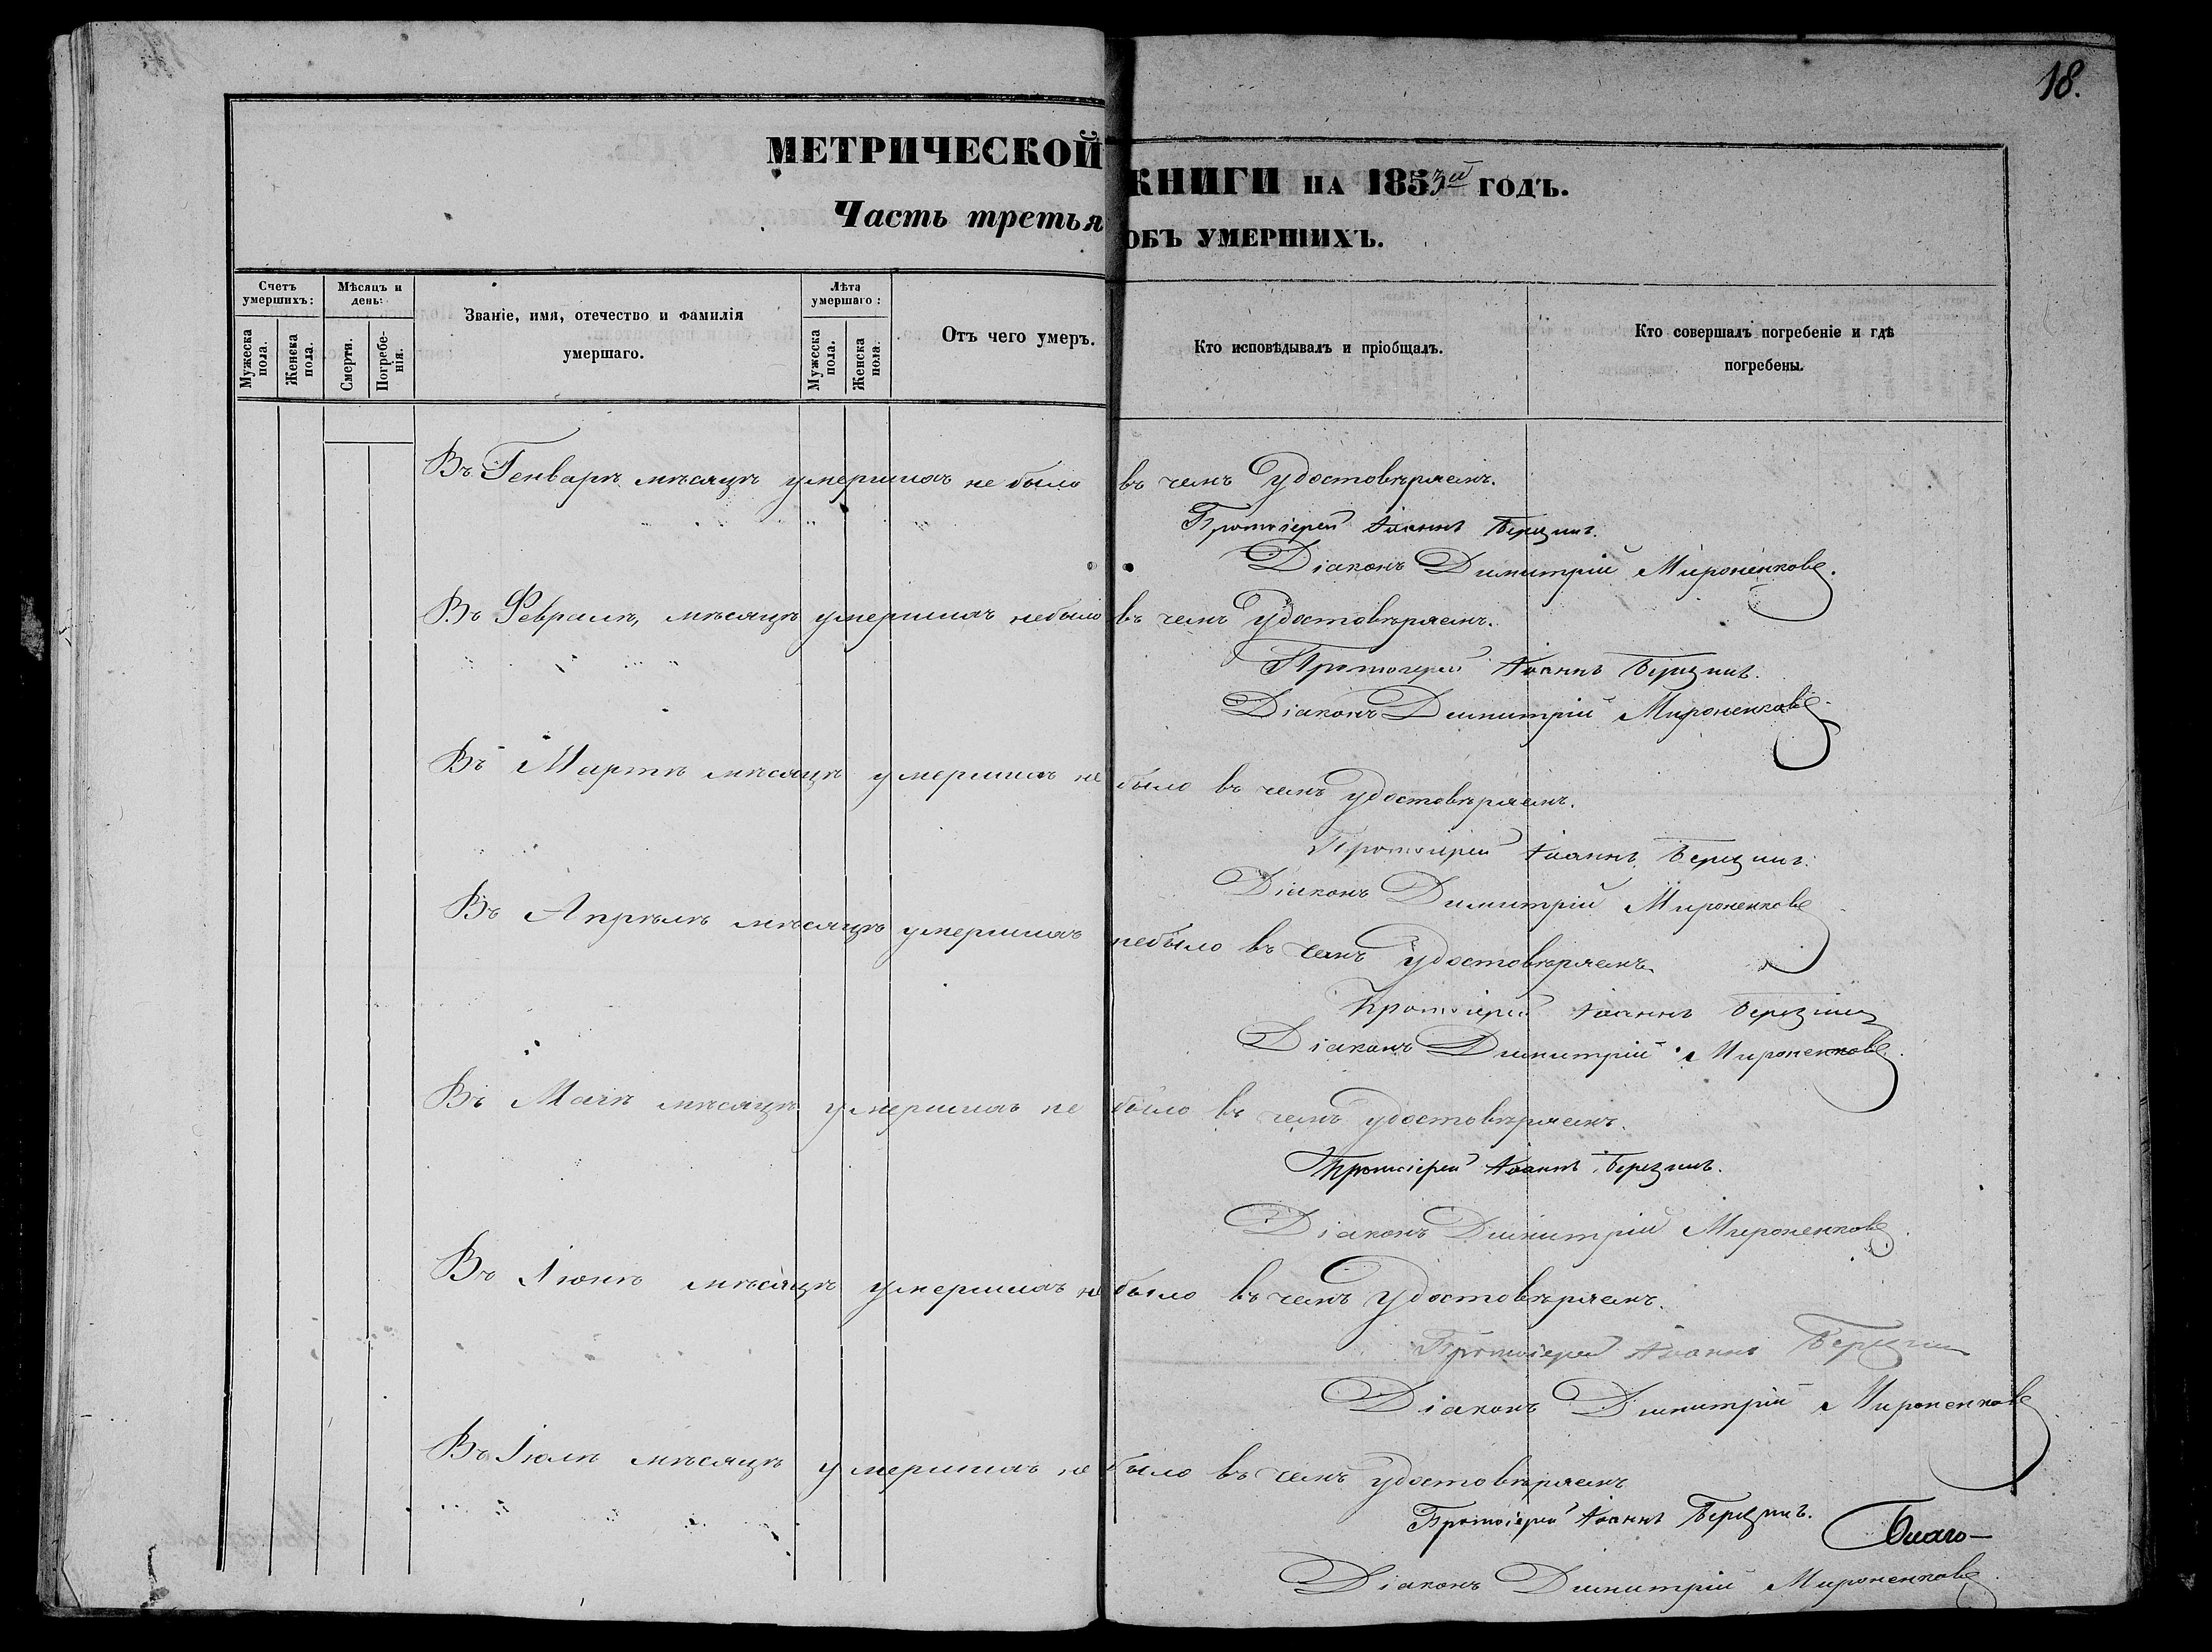 18.
МЕТРИЧЕСКОЙ КНИГИ НА 1853ій ГОДЪ.
Часть третья ОБЪ УМЕРШИХЪ.
Счетъ умершихъ:
Мужеска пола.
Женска пола.
Мѣсяцъ и день:
Смерти.
Погребенія.
Званіе, имя, отечество и фамилія умершаго.
Лѣта умершаго:
Мужеска пола.
Женска пола.
Отъ чего умеръ.
Кто исповѣдывалъ и пріобщалъ.
Кто совершалъ погребеніе и гдѣ погребены.
Въ Генварѣ мѣсяцѣ умершихъ не было въ чемъ удостовѣряемъ.
Протоіерей Іоаннъ Березинъ.
Діаконъ Димитрій Мироненковъ.
Въ Февралѣ, мѣсяцѣ умершихъ небыло въ чемъ удостовѣряемъ.
Протоіерей Іоаннъ Березинъ.
Діаконъ Димитрій Мироненковъ.
Въ Мартѣ мѣсяцѣ умершихъ не было въ чемъ удостовѣряемъ.
Протоіерей Іоаннъ Березинъ.
Діаконъ Димитрій Мироненковъ
Въ Апрѣлѣ мѣсяцѣ умершихъ небыло въ чемъ удостовѣряемъ.
Протоіерей Іоаннъ Березинъ
Діаконъ Димитрій Мироненковъ.
Въ Маѣ мѣсяцѣ умершихъ не было въ чемъ удостовѣряемъ.
Протоіерей Іоаннъ Березинъ.
Діаконъ Димитрій Мироненковъ.
Въ Іюнѣ мѣсяцѣ умершихъ не было въ чемъ удостовѣряемъ.
Протоіерей Іоаннъ Березин
Діаконъ Димитрій Мироненковъ
Въ Іюлѣ мѣсяцѣ умершихъ не было въ чемъ удостовѣряемъ
Протоіерей Іоаннъ Березинъ.
Благо—
Діаконъ Димитрій Мироненковъ.